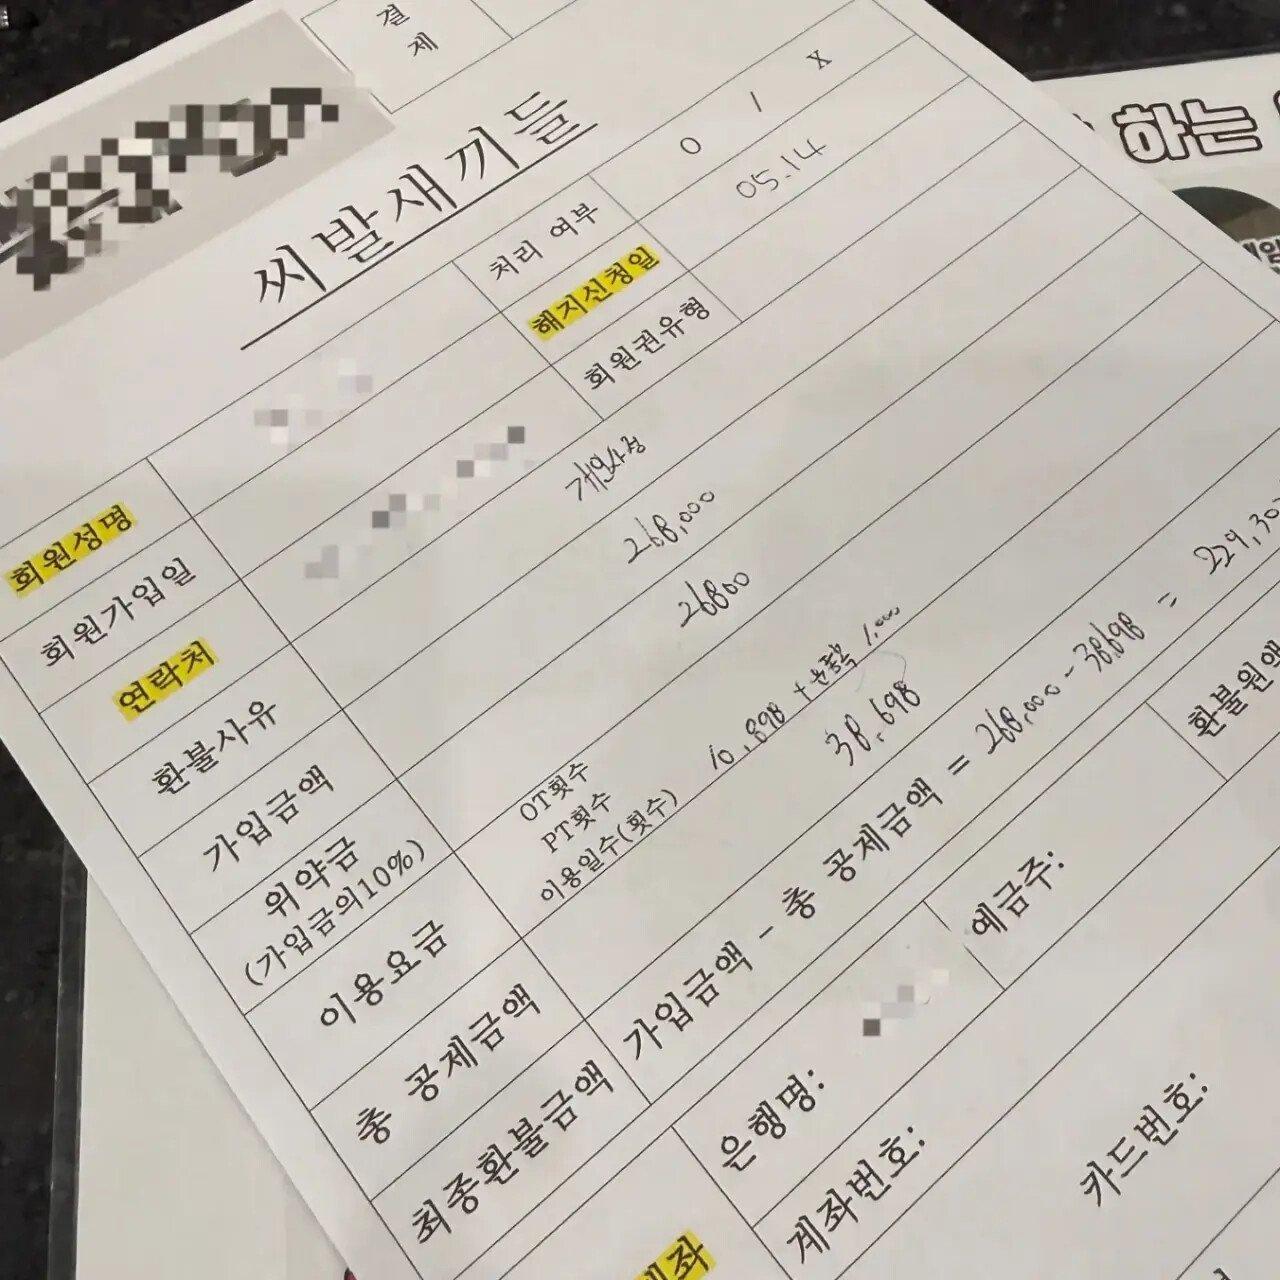 결
제
하는
씨발새끼들
처리 여부 O / X
해지신청일 05.14
회원권유형
회원성명
회원가입일
연락처
환불사유 개인사정
가입금액 268,000
위약금 26800
(가입금의10%)
OT횟수
PT횟수
이용요금 이용일수(횟수) 10,898 + 운동복 1,000
총 공제금액 38,698
최종환불금액 가입금액 - 총 공제금액 = 268,000 - 38698 = 229,30
환불원액
은행명:
예금주:
계좌번호:
카드번호: